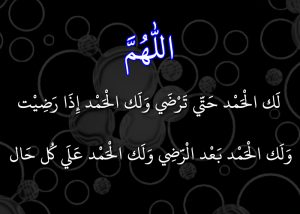 اللّٰهُمَّ
لَك الْحَمْد حَتّي تَرْضَي وَلَك الْحَمْد إِذَا رَضِيْت
وَلَك الْحَمْد بَعْد الْرِّضِي وَلَك الْحَمْد عَلَي كُل حَال